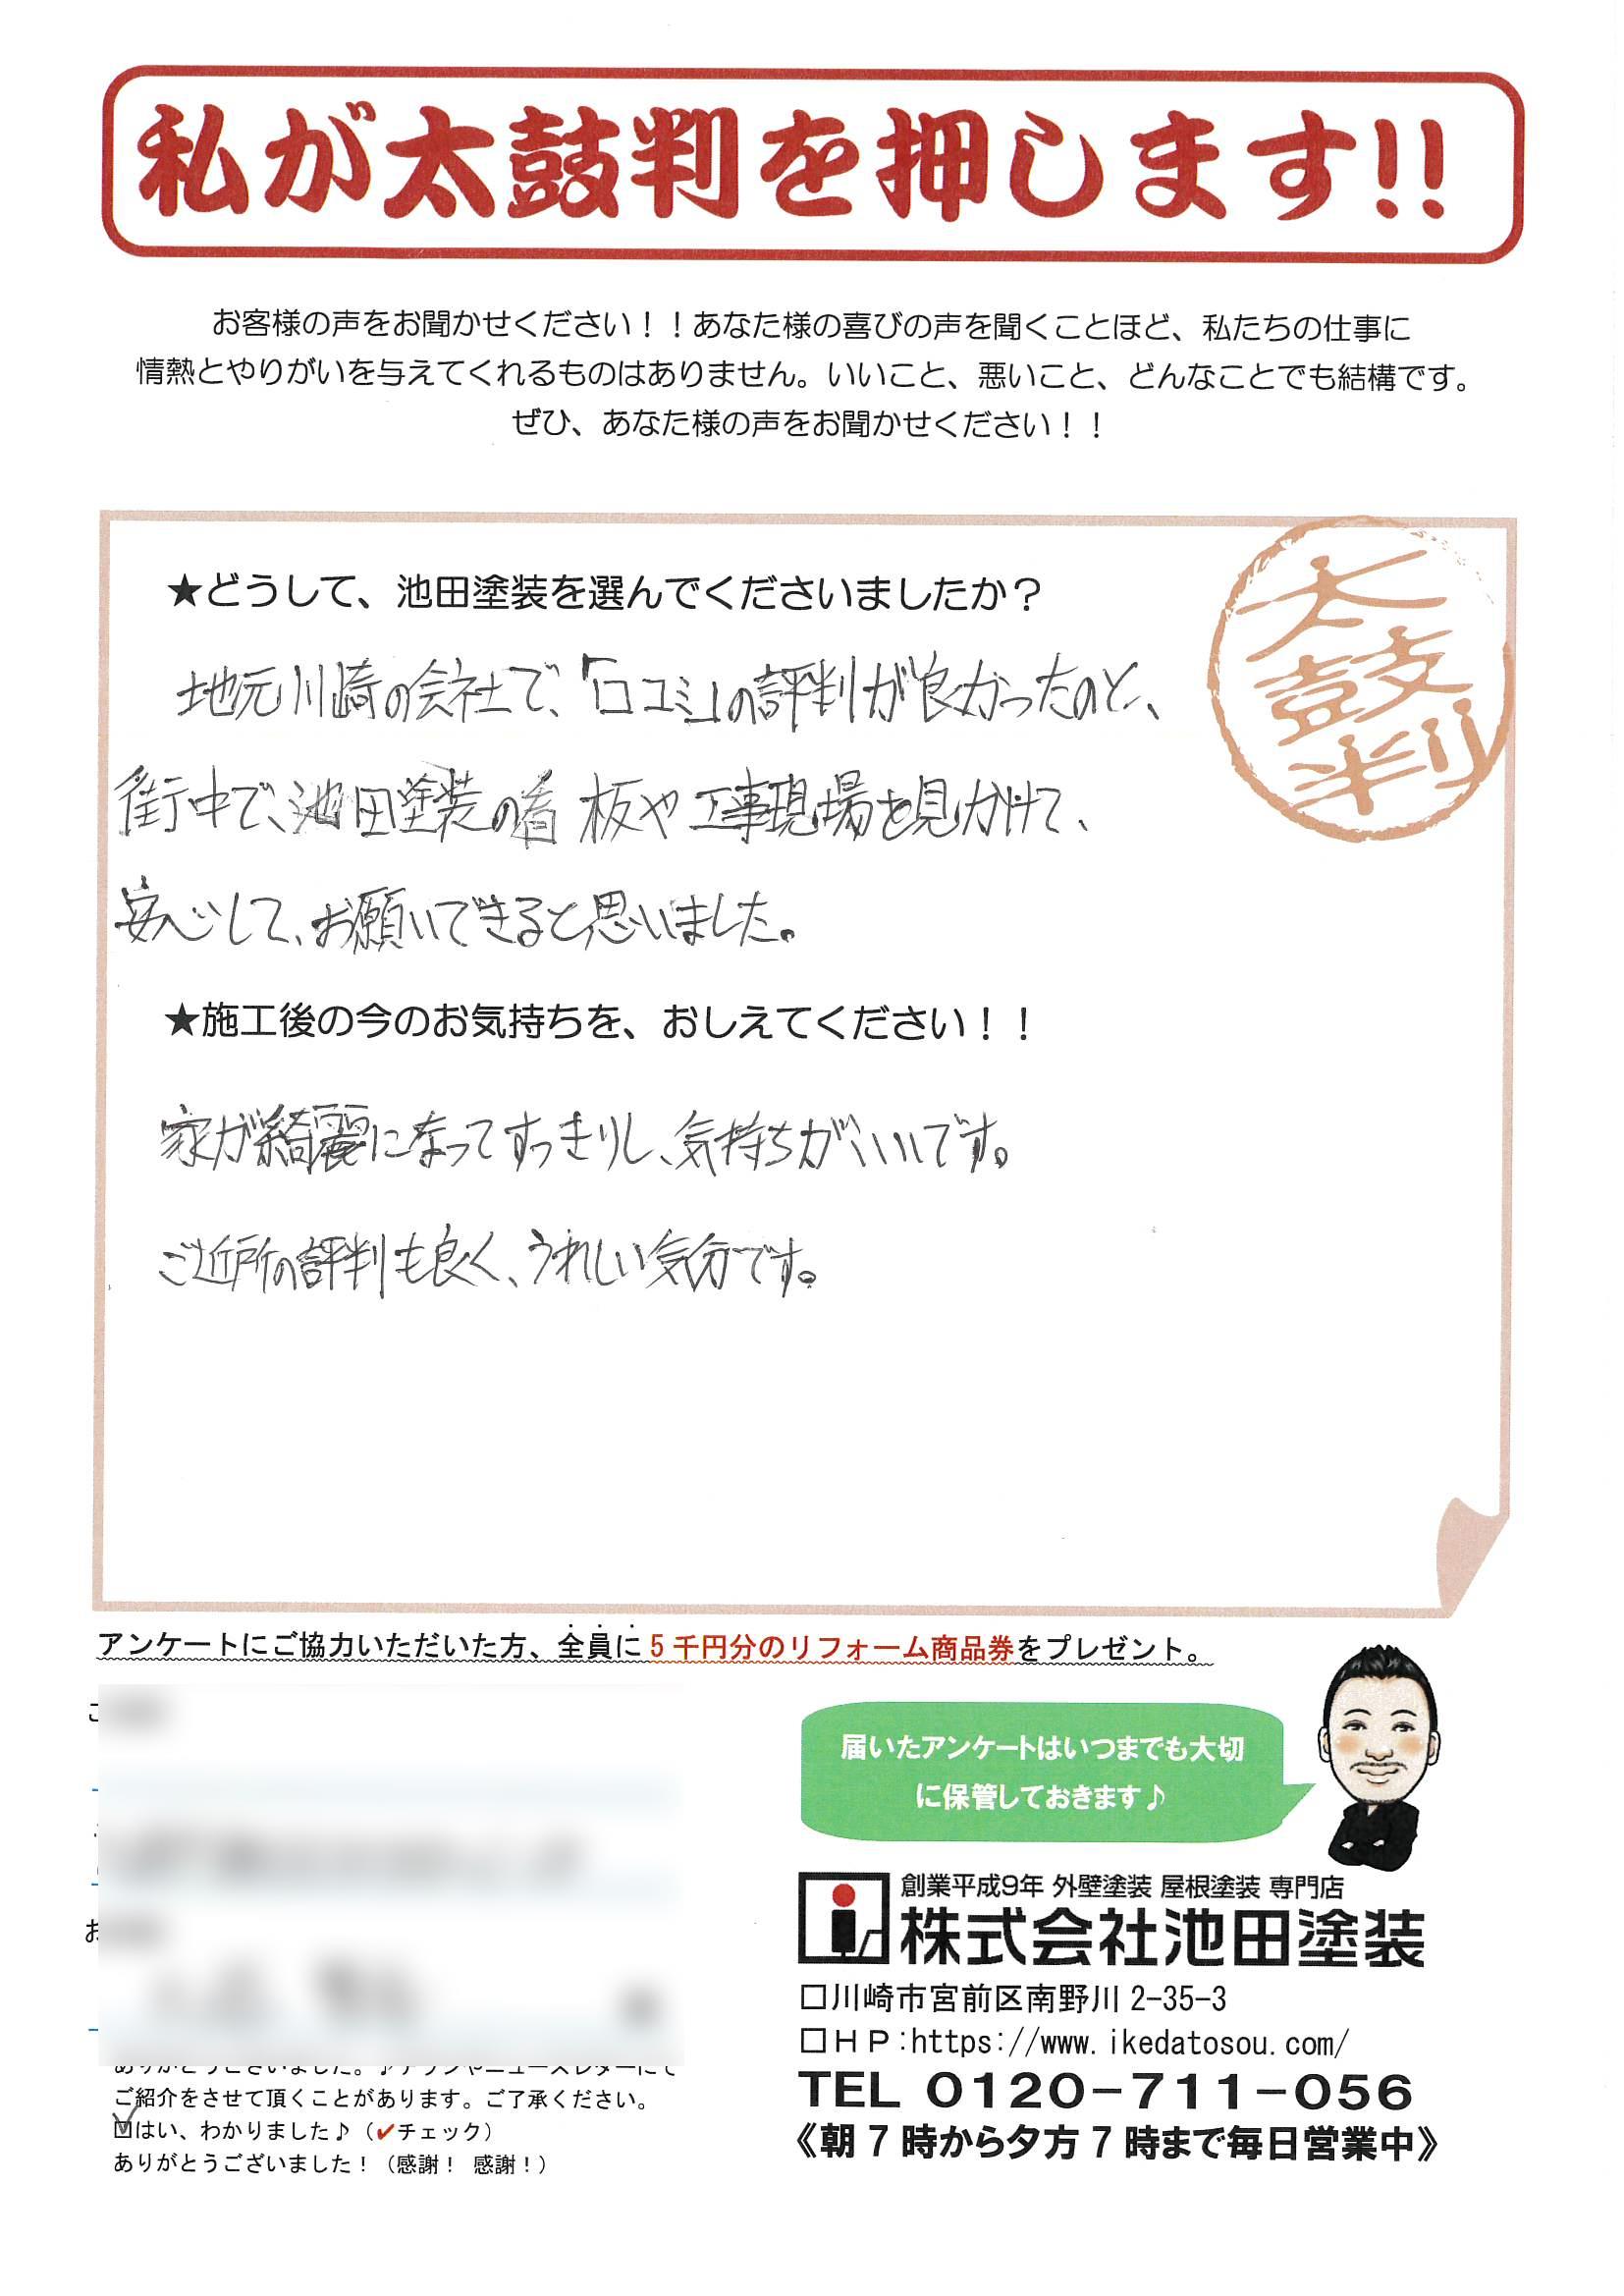 私が太鼓判を押します!!
お客様の声をお聞かせください！！あなた様の喜びの声を聞くことほど、私たちの仕事に
情熱とやりがいを与えてくれるものはありません。いいこと、悪いこと、どんなことでも結構です。
ぜひ、あなた様の声をお聞かせください！！
太鼓判
★どうして、池田塗装を選んでくださいましたか？
地元川崎の会社で、「口コミ」の評判が良かったのと、
街中で、池田塗装の看板や工事現場を見かけて、
安心して、お願いできると思いました。
★施工後の今のお気持ちを、おしえてください！！
家が綺麗になってすっきりし、気持ちがいいです。
ご近所の評判も良く、うれしい気分です。
アンケートにご協力いただいた方、全員に5千円分のリフォーム商品券をプレゼント。
届いたアンケートはいつまでも大切
に保管しておきます♪
お
ありがとうございました。♪チラシやニュースレターにて
ご紹介をさせて頂くことがあります。ご了承ください。
☑はい、わかりました♪（✔チェック）
ありがとうございました！（感謝！ 感謝！）
創業平成9年 外壁塗装 屋根塗装 専門店
株式会社池田塗装
□川崎市宮前区南野川2-35-3
□ＨＰ:https://www.ikedatosou.com/
TEL 0120-711-056
《朝7時から夕方7時まで毎日営業中》